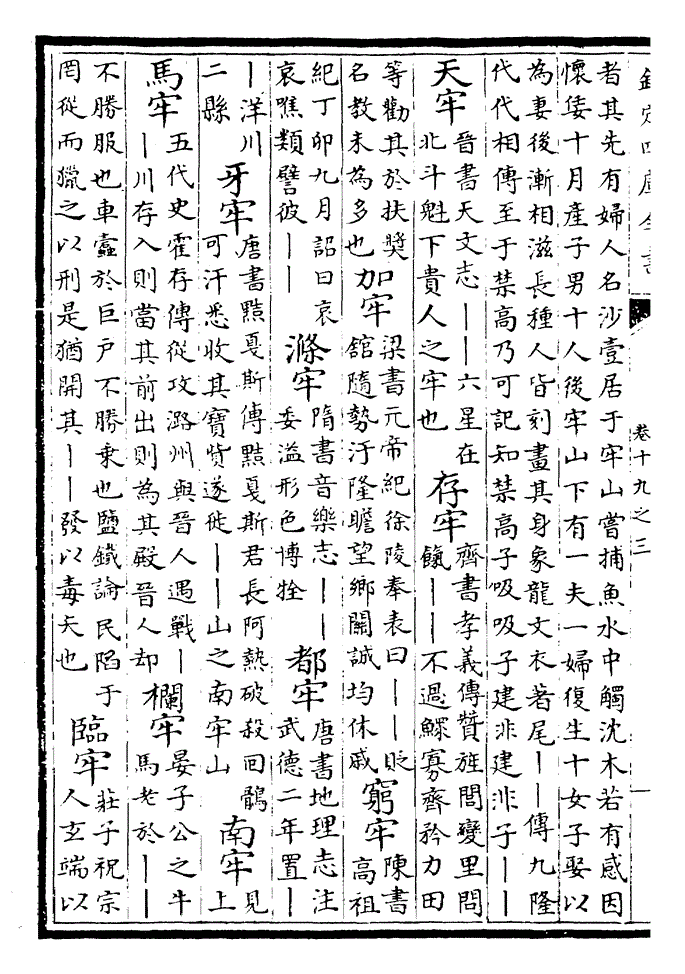 欽定四庫全書
卷十九之三
一
者其先有婦人名沙壹居于牢山嘗捕魚水中觸沈木若有感因
懷㑗十月產子男十人後牢山下有一夫一婦復生十女子娶以
為妻後漸相滋長種人皆刻畫其身象龍文衣著尾丨丨傳九隆
代代相傳至于禁高乃可記知禁高子吸吸子建非建非子丨丨
天牢
晉書天文志丨丨六星在
北斗魁下貴人之牢也
存牢
齊書孝義傳贊旌閭變里問
餼丨丨不過鰥寡齊矜力田
等勸其於扶獎
名教未為多也
加牢
梁書元帝紀徐陵奉表曰丨丨貶
館隨勢汙隆瞻望鄉關誠均休戚
窮牢
陳書
高祖
紀丁卯九月詔曰哀
哀噍類譬彼丨丨
滌牢
隋書音樂志丨丨
委溢形色博牷
都牢
唐書地理志注
武德二年置丨
丨洋川
二縣
牙牢
唐書黠戛斯傳黠戛斯君長阿熱破殺回鶻
可汗悉收其寶貲遂徙丨丨山之南牢山
南牢
見
上
馬牢
五代史霍存傳從攻潞州與晉人遇戰丨
丨川存入則當其前出則為其殿晉人却
欄牢
晏子公之牛
馬老於丨丨
不勝服也車蠹於巨戶不勝乘也鹽鐵論民陷于
罔從而獵之以刑是猶開其丨丨發以毒矢也
臨牢
莊子祝宗
人玄端以